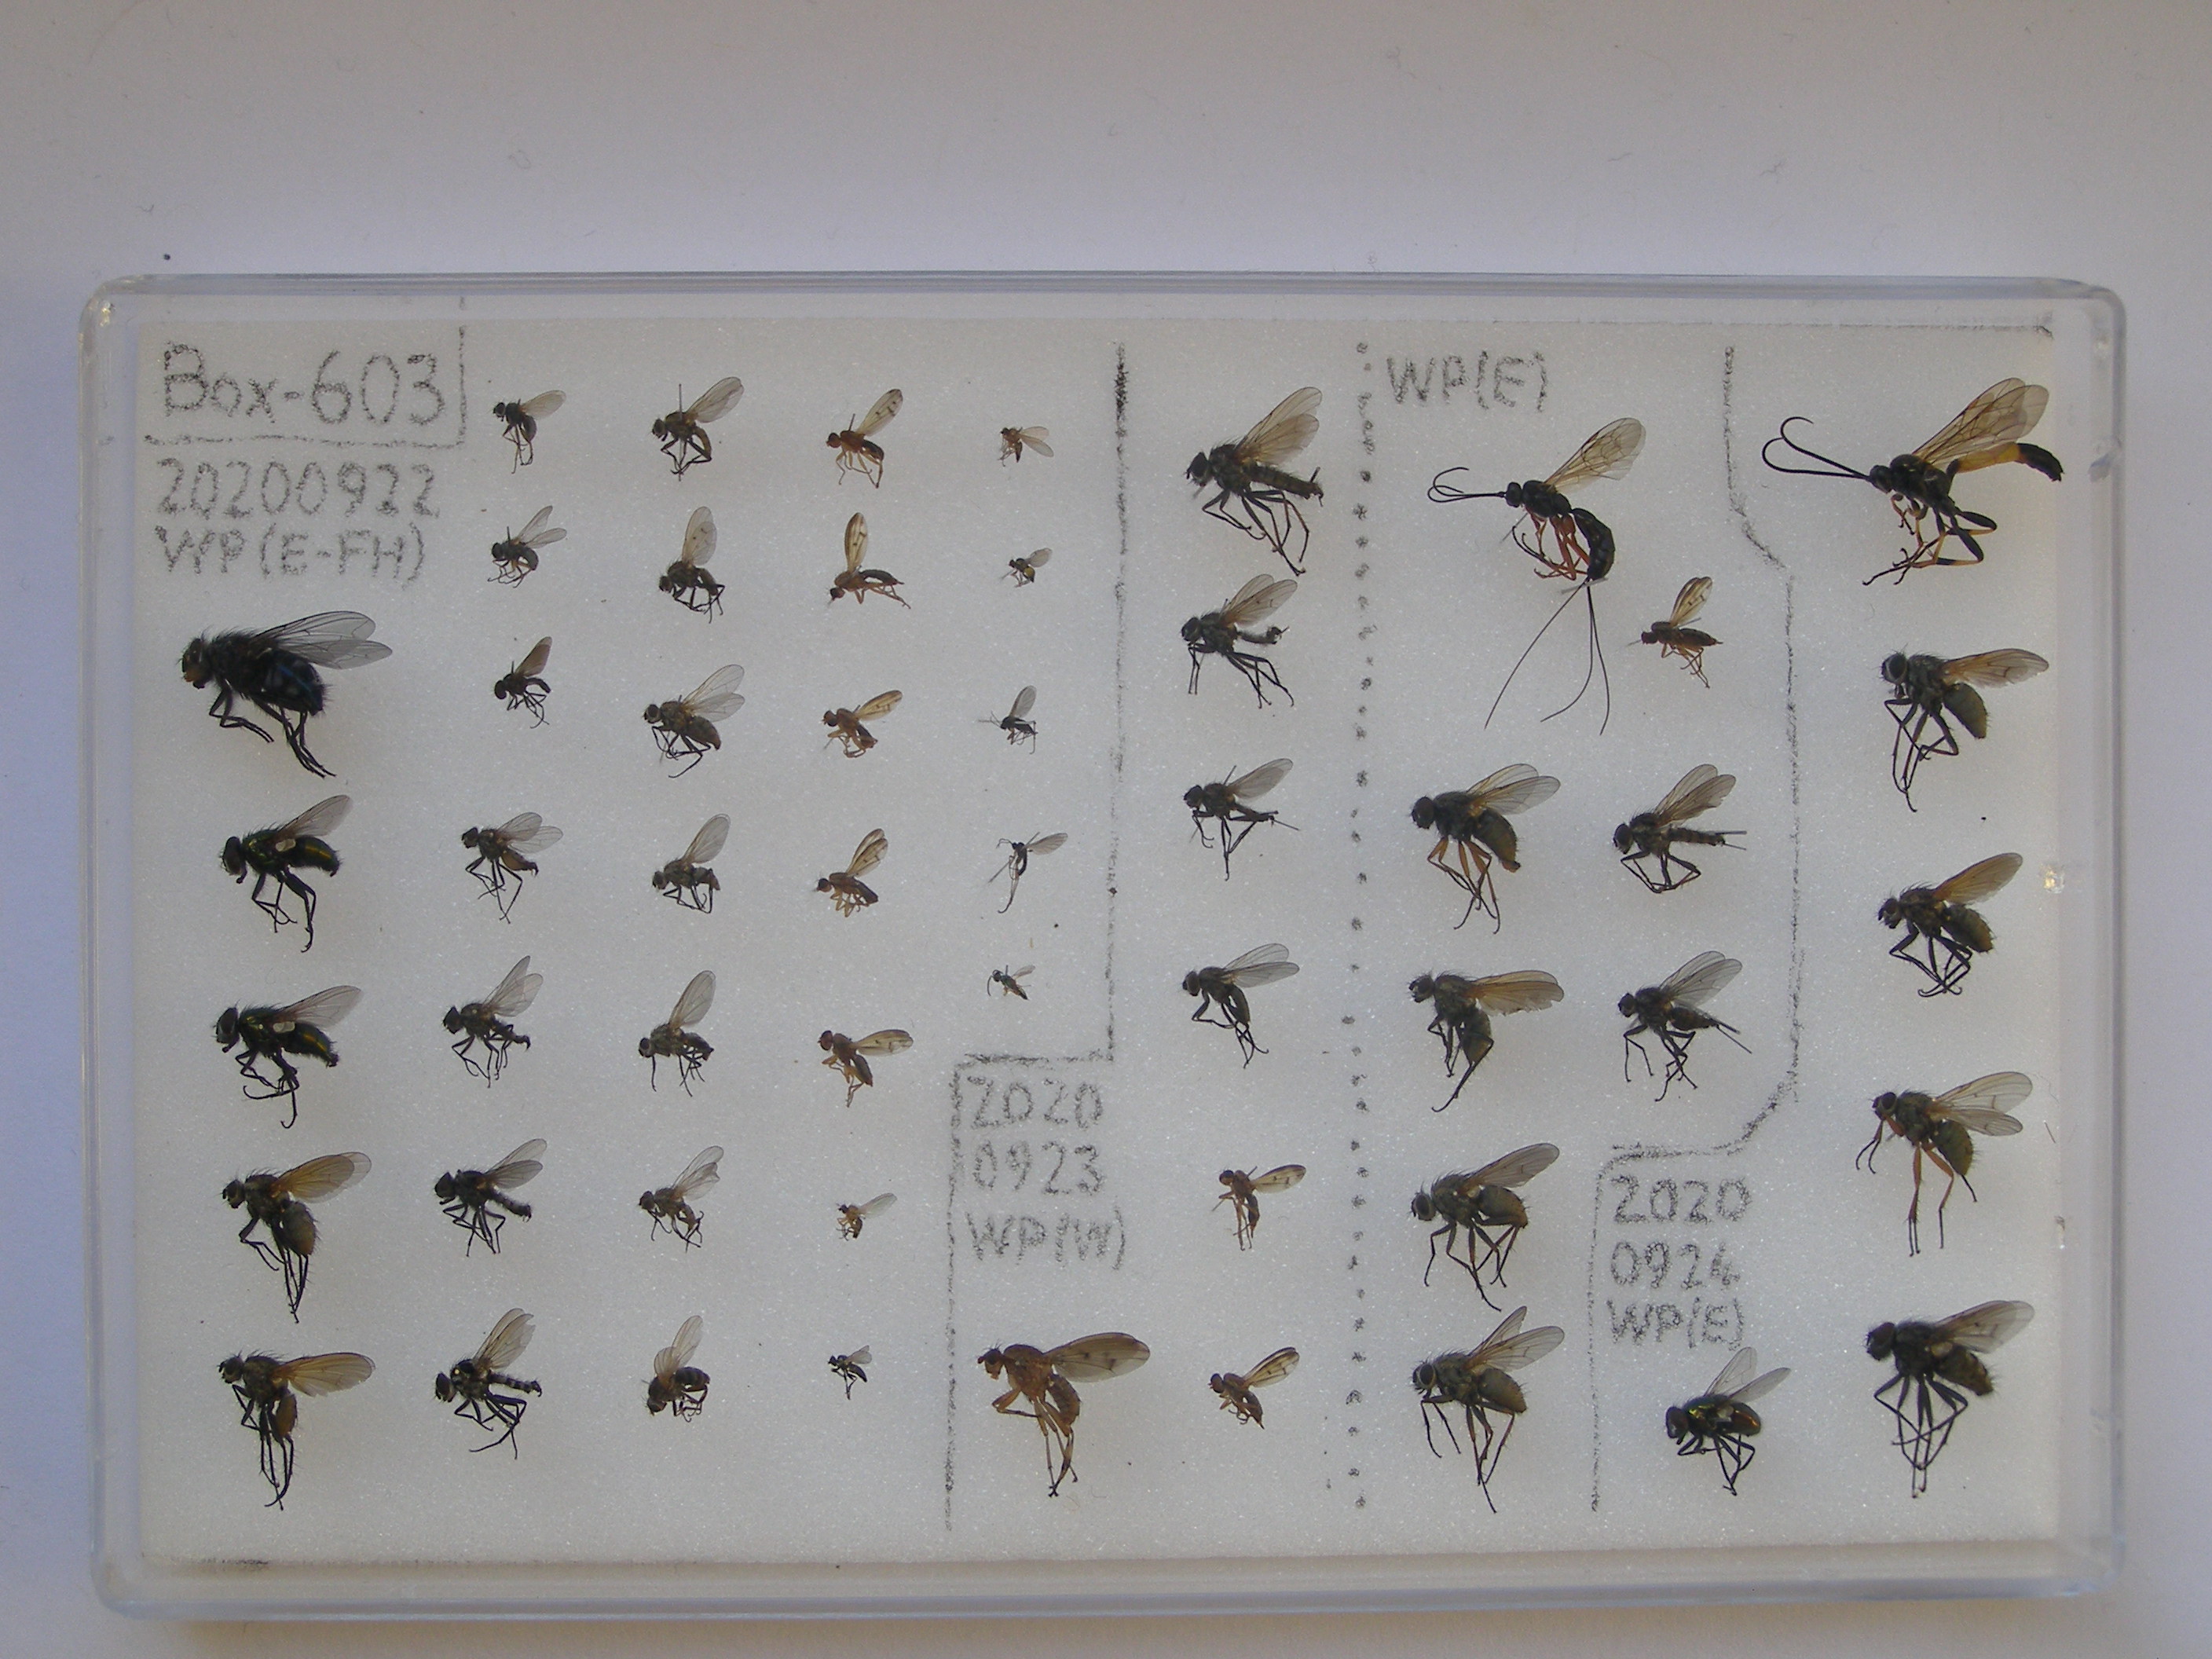 Box-603
20200922
WP(E-FH)
2020
0923
WP(W)
WP(E)
2020
0924
WP(E)